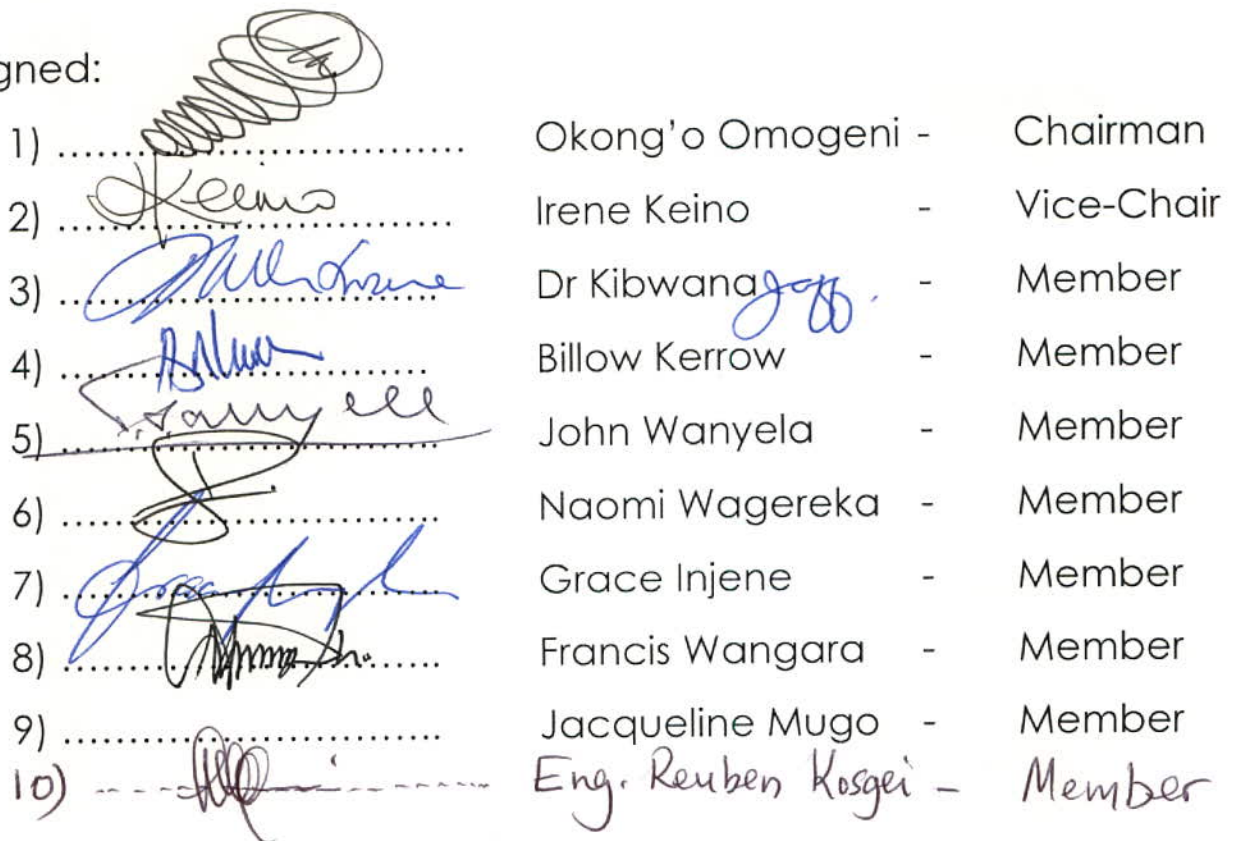 gned:
1) .................................. Okong'o Omogeni - Chairman
2) .................................. Keino Irene Keino - Vice-Chair
3) .................................. Dr Kibwana - Member
4) .................................. Billow Kerrow - Member
5) .................................. John Wanyela - Member
6) .................................. Naomi Wagereka - Member
7) .................................. Grace Injene - Member
8) .................................. Francis Wangara - Member
9) .................................. Jacqueline Mugo - Member
10) ------------------ Eng. Reuben Kosgei - Member